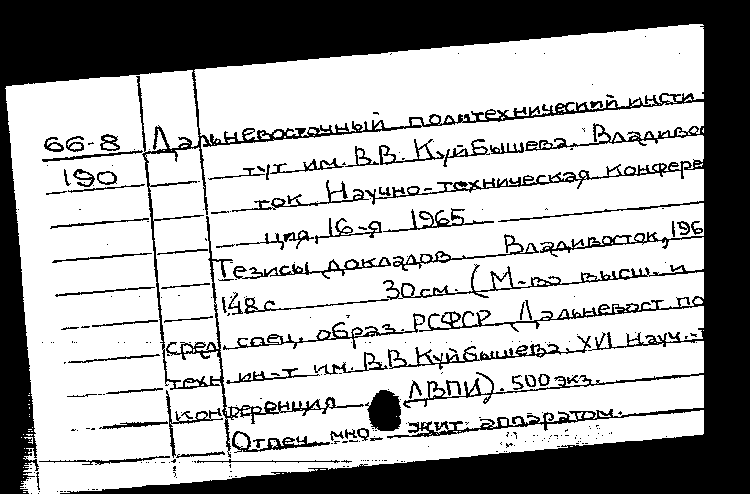 66-8 Дальневосточный политехнический инсти-
190 тут им. В.В. Куйбышева, Владивос
ток. Научно-техническая конферен
ция, 16-я 1965.
Тезисы докладов. Владивосток, 196
148с 30см. (М-во высш. и
сред. спец. образ. РСФСР Дальневост по
техн. ин-т им. В.В. Куйбышева. XVI науч.-т
конференция ДВПИ). 500 экз.
Отпеч. мно жит. аппаратом.